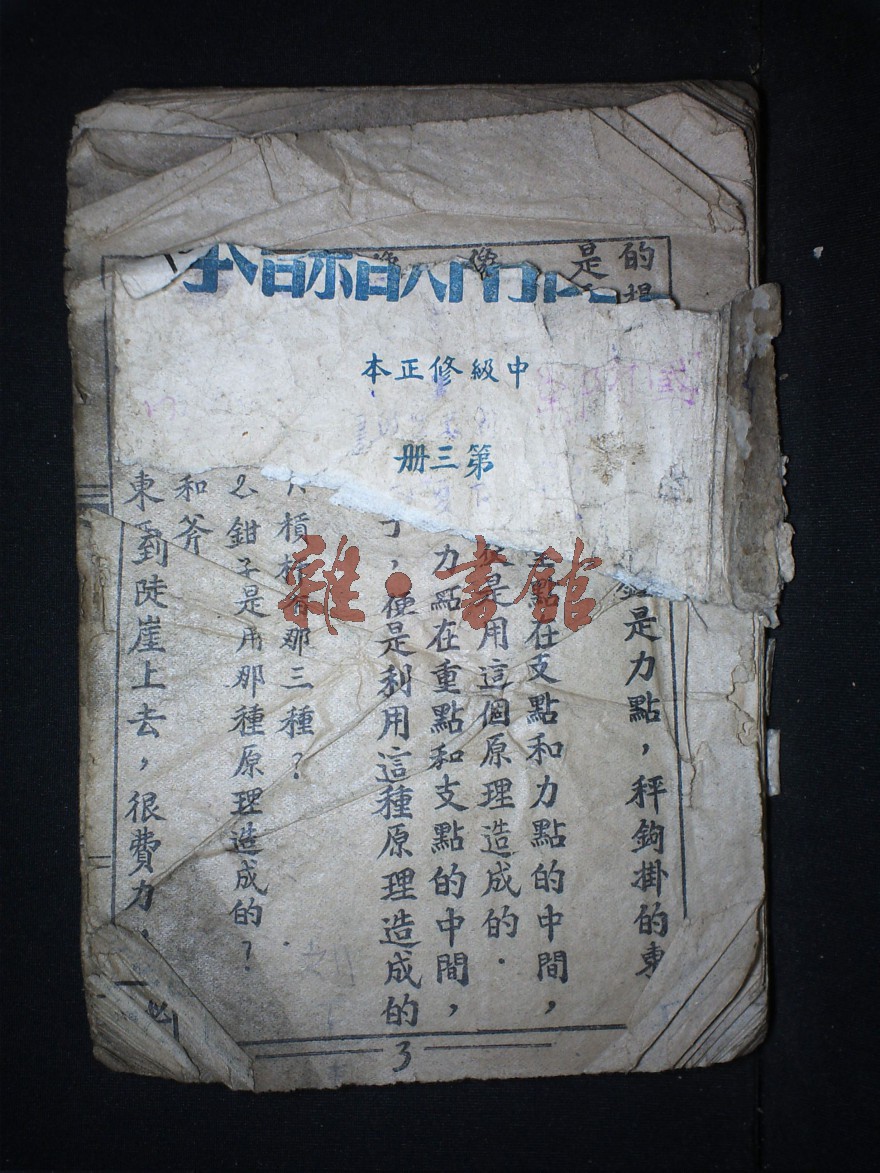 課本
中級修正本
第三册
的
是
是力點，秤鉤掛的東
點在支點和力點的中間，
是用這個原理造成的．
力點在重點和支點的中間，
了，便是利用這種原理造成的
槓桿有那三種？
2.鉗子是用那種原理造成的？
和斧
東到陡崖上去，很費力．
3
雜·書館